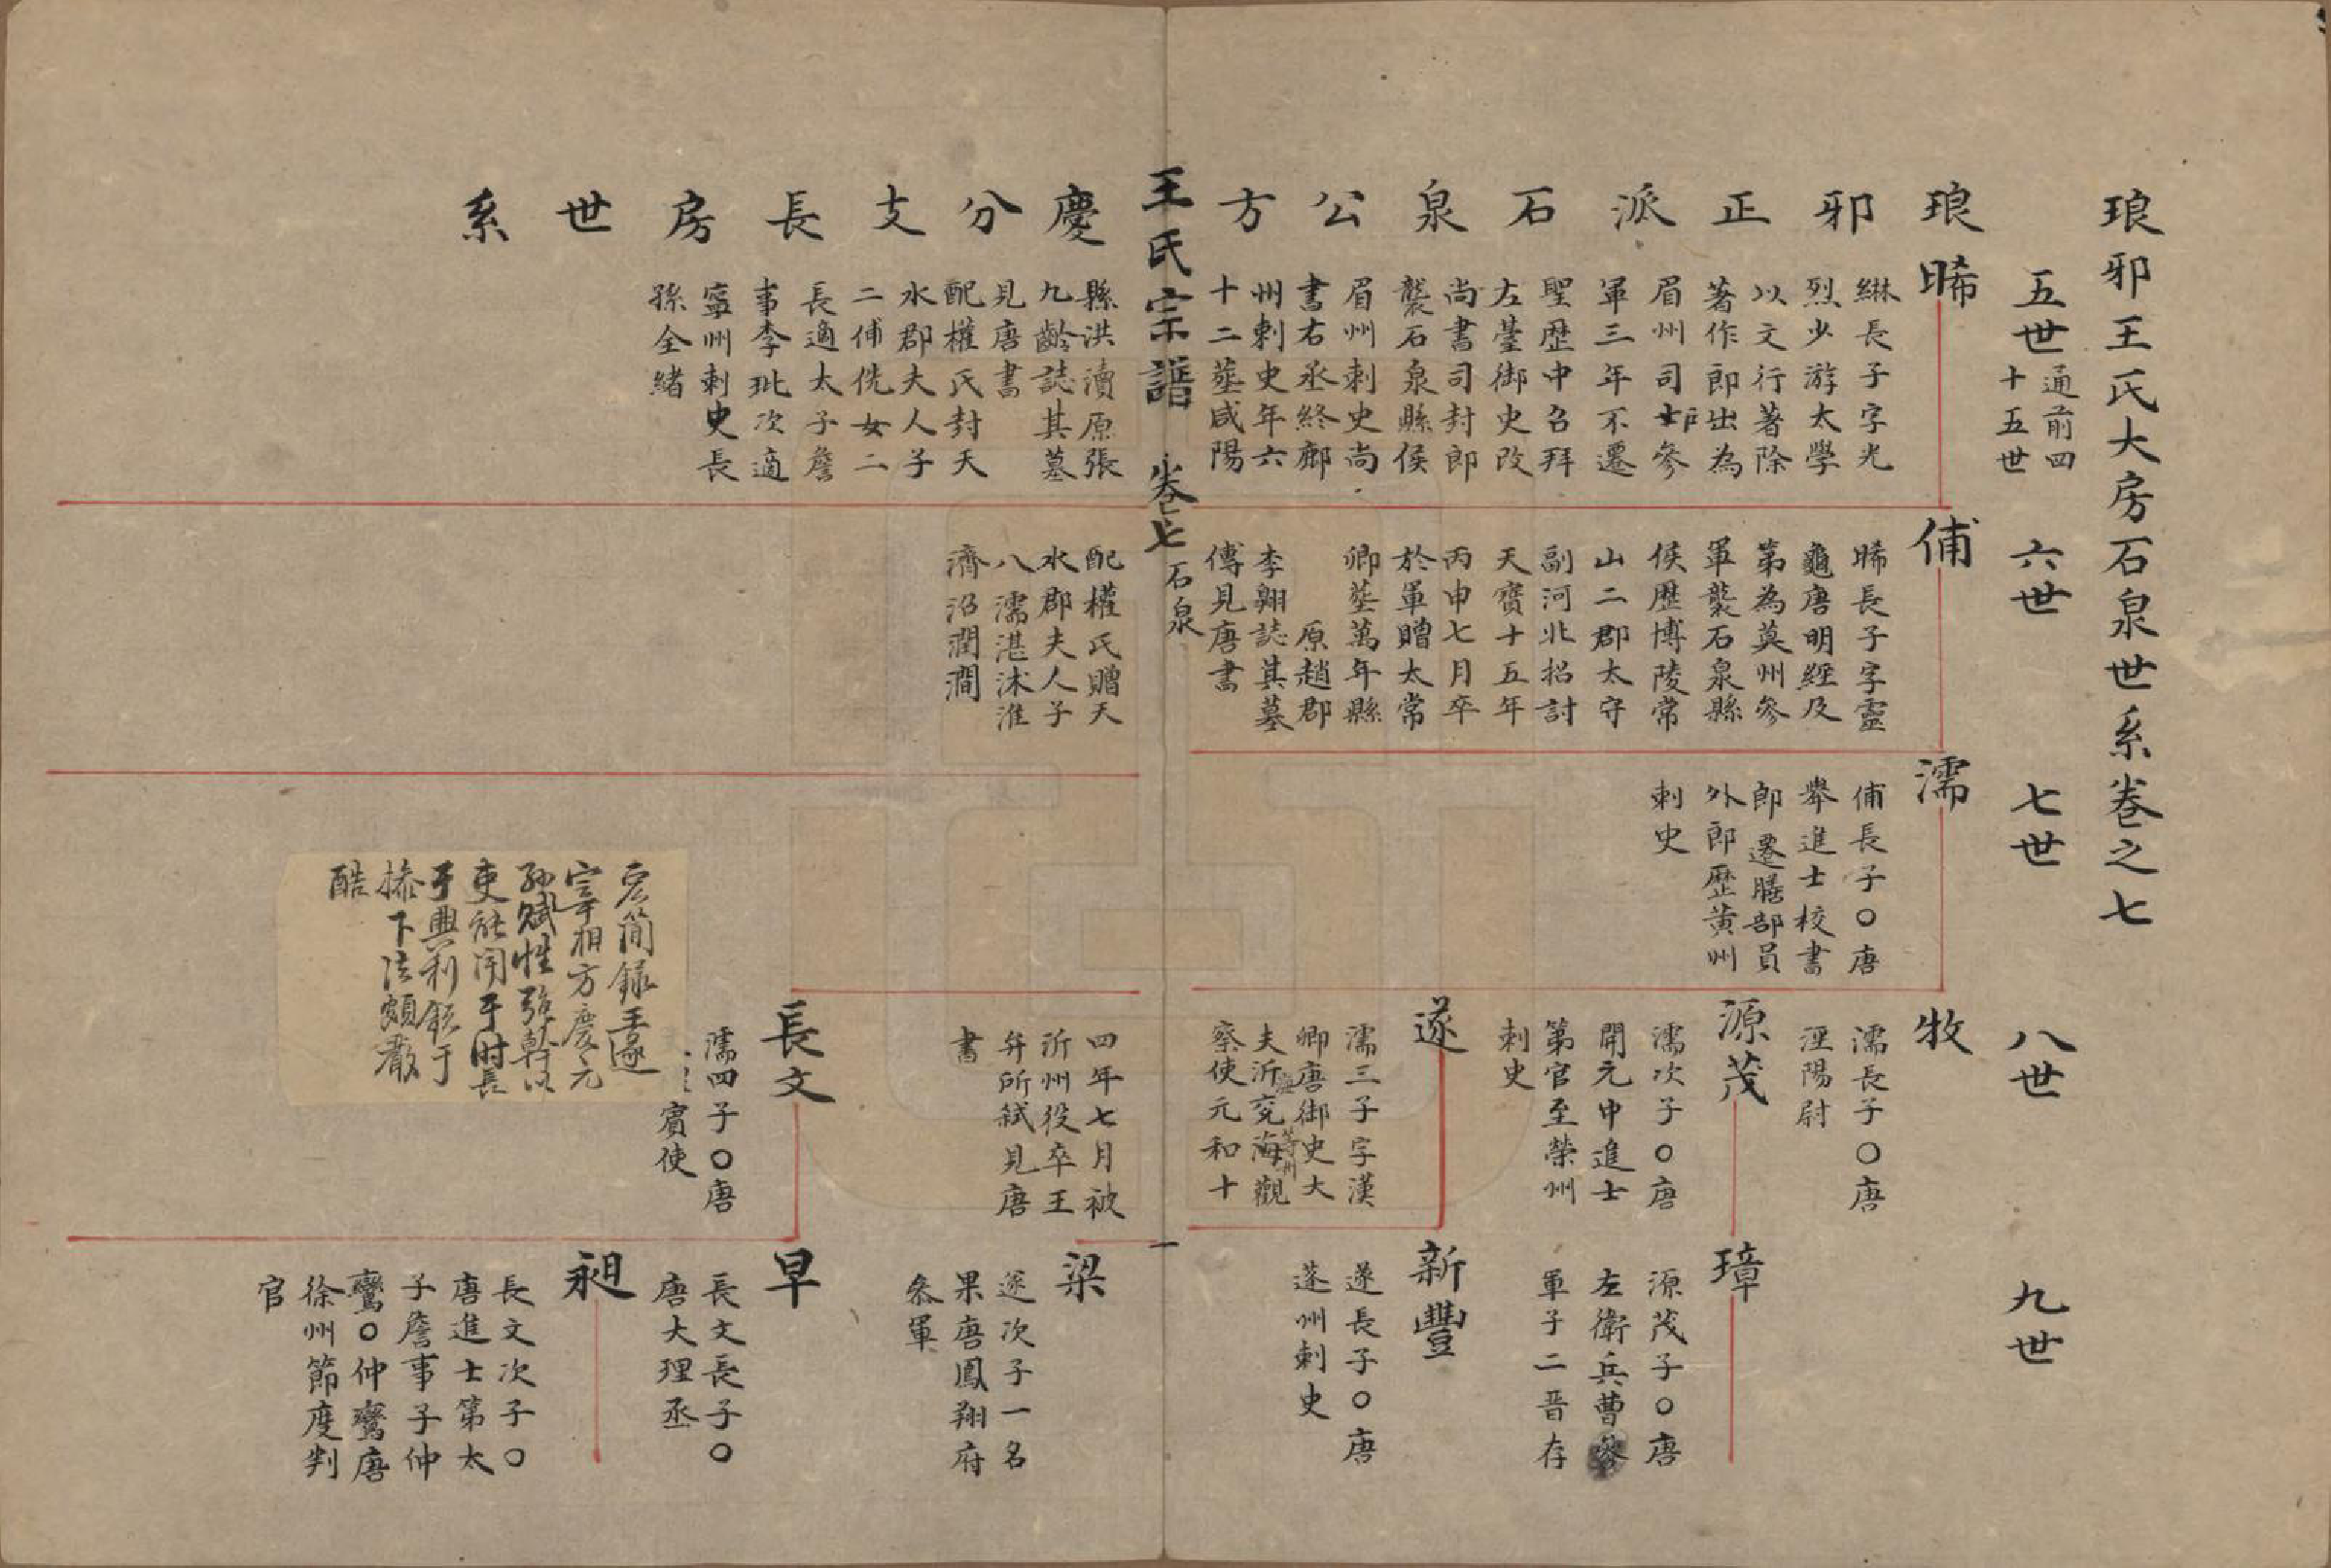 琅邪王氏大房石泉世系卷之七
五世
通前四
十五世
六世
七世
八世
九世
琅邪正派石泉公方慶分支長房世系
晞
綝長子字光
烈少游太學
以文行著除
著作郎出為
眉州司士參
軍三年不遷
聖歷中召拜
左臺御史改
尚書司封郎
襲石泉縣侯
眉州刺史尚
書右丞終鄜
州刺史年六
十二塟咸陽
縣洪瀆原張
九齡誌其墓
見唐書
配權氏封天
水郡夫人子
二俌侁女二
長適太子詹
事李玭次適
寧州刺史長
孫全緒
俌
晞長子字靈
龜唐明經及
第為莫州參
軍襲石泉縣
侯歷博陵常
山二郡太守
副河北招討
天寶十五年
丙申七月卒
於軍贈太常
卿塟萬年縣
原趙郡
李翺誌其墓
傳見唐書
配權氏贈天
水郡夫人子
八濡湛沐淮
濟沿潤澗
濡
俌長子○唐
舉進士校書
郎遷膳部員
外郎歷黃州
刺史
牧
濡長子○唐
涇陽尉
源茂
濡次子○唐
開元中進士
第官至榮州
刺史
遂
濡三子字漢
卿唐御史大
夫沂兗海觀
等州
察使元和十
四年七月被
沂州役卒王
弁所弒見唐
書
長文
濡四子○唐
賓使
璋
源茂子○唐
左衛兵曹參
軍子二晋存
新豐
遂長子○唐
蓬州刺史
梁
遂次子一名
果唐鳳翔府
叅軍
早
長文長子○
唐大理丞
昶
長文次子○
唐進士第太
子詹事子仲
鸞○仲鸞唐
徐州節度判
官
王氏宗譜 卷七 石泉
一
簡錄王遂
宰相方慶元
孫賦性強幹以
吏能聞于时長
于興利銳于
操下法頗嚴
酷